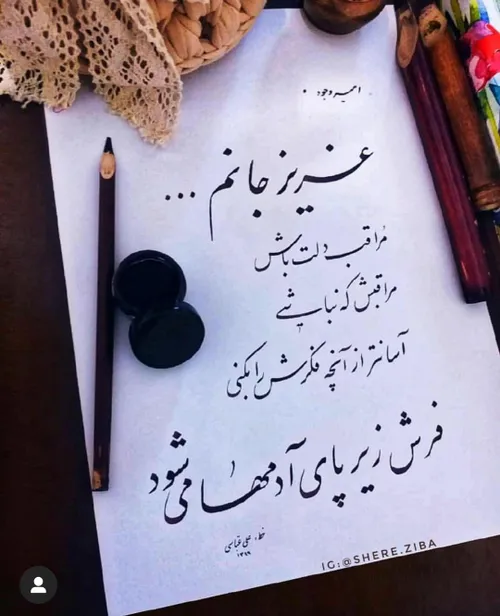 امیر وجود
عزیز جانم ...
مُراقب دلت باش
مراقبش که نباشی
آسانتر از آنچه فکرش را بکنی
فرش زیر پای آدمها می‌شود
خط: علی عباسی
۱۳۹۹
IG:@SHERE.ZIBA